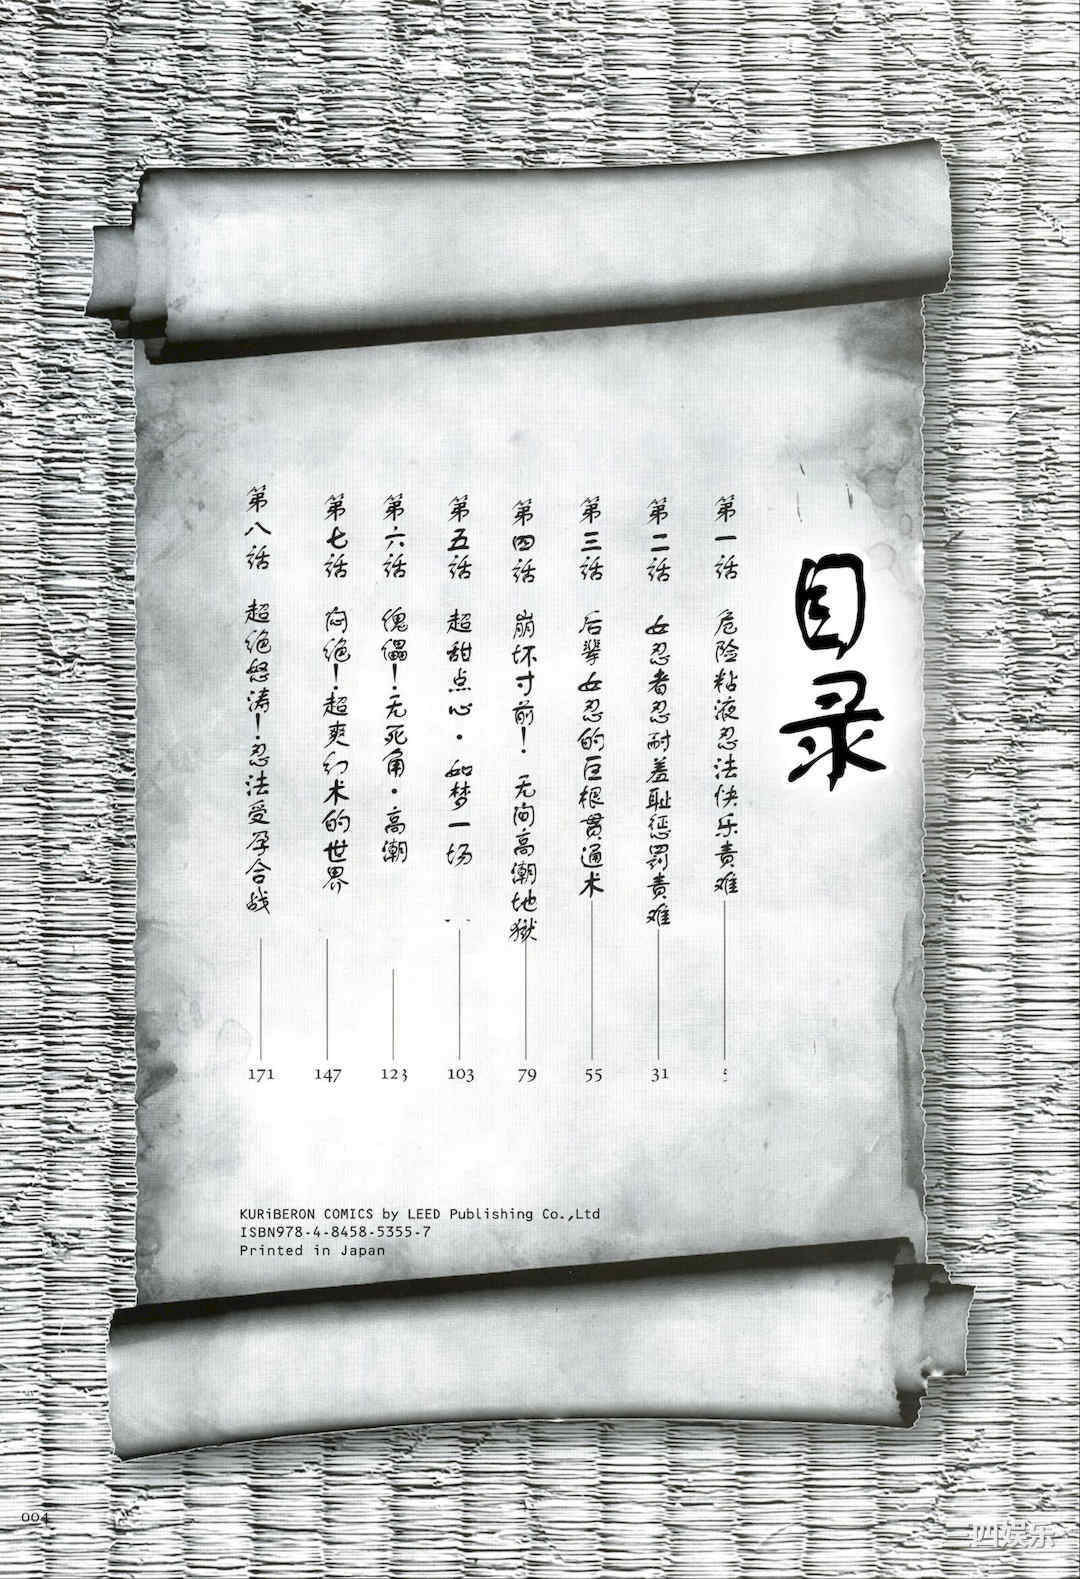 目录
第一话 危险粘液忍法快乐责难 5
第二话 女忍者忍耐羞耻惩罚责难 31
第三话 后辈女忍的巨根贯通术 55
第四话 崩坏寸前！无间高潮地狱 79
第五话 超甜点心·如梦一场 103
第六话 傀儡！无死角·高潮 123
第七话 闷绝！超爽幻术的世界 147
第八话 超绝怒涛！忍法受孕合战 171
KURiBERON COMICS by LEED Publishing Co.,Ltd
ISBN978-4-8458-5355-7
Printed in Japan
004